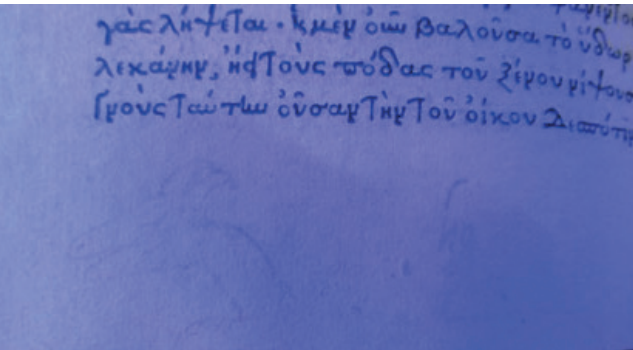 γὰς λήψεται· κ μὲν οὖν βαλοῦσα τὸ ὕδωρ
λεκάνην, τοὺς πόδας τοῦ ξένου νίψουσ
ταύτην οὖσαν τὴν τοῦ οἴκου